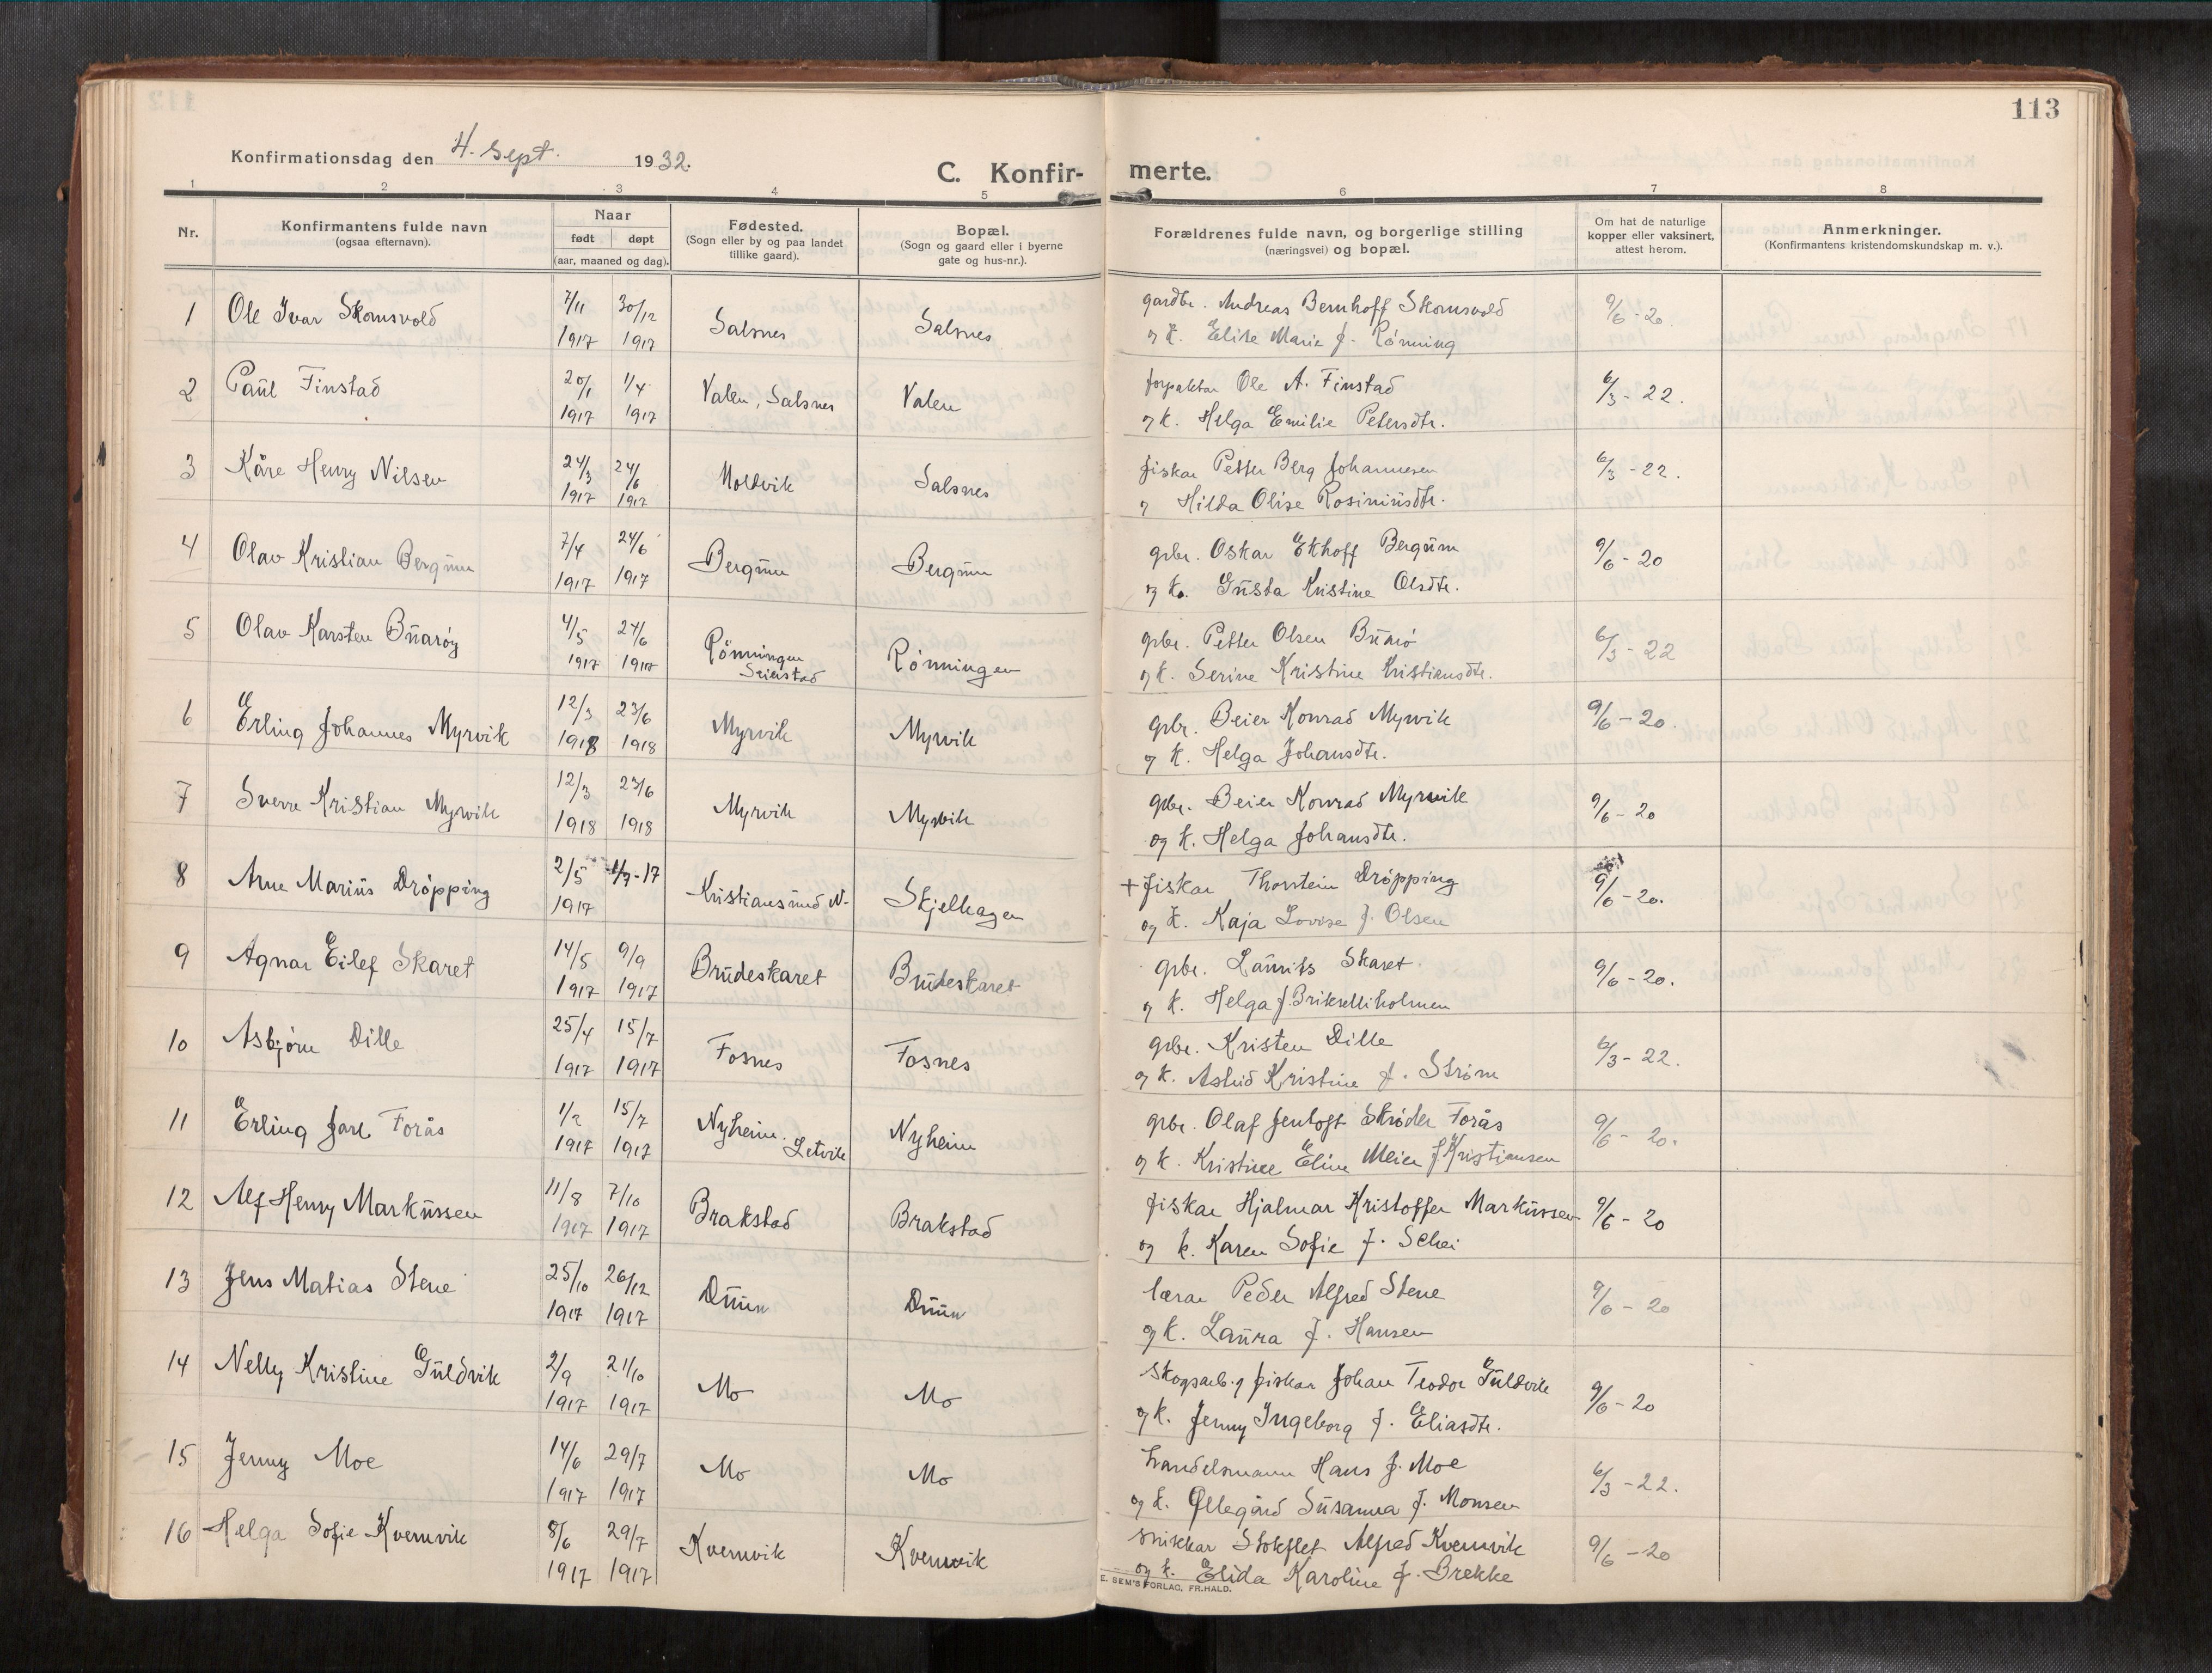 113
Konfirmationsdag den 4. Sept. 1932.
C. Konfir- merte.
1 2 3 4 5 6 7 8
Nr.
Konfirmantens fulde navn
(ogsaa efternavn).
Naar
født døpt
(aar, maaned og dag).
Fødested.
(Sogn eller by og paa landet
tillike gaard).
Bopæl.
(Sogn og gaard eller i byerne
gate og hus-nr.).
Forældrenes fulde navn, og borgerlige stilling
(næringsvei) og bopæl.
Om hat de naturlige
kopper eller vaksinert,
attest herom.
Anmerkninger.
(Konfirmantens kristendomskundskap m. v.).
1 Ole Ivar Skomsvold 7/11 30/12 Salsnes Salsnes gardbr. Andreas Bernhoff Skomsvold 9/6-20.
1917 1917 og k. Elise Marie f. Rønning
2 Paul Finstad 20/1 1/4 Valen, Salsnes Valen forpaktar Ole A. Finstad 6/3-22.
1917 1917 og k. Helga Emilie Petersdtr.
3 Kåre Henry Nilsen 24/3 24/6 Moldvik Salsnes fiskar Petter Berg Johannesen 6/3-22.
1917 1917 og Hilda Olise Rosiniusdtr.
4 Olav Kristian Bergum 7/4 24/6 Bergum Bergum grbr. Oskar Ekhoff Bergum 9/6-20
1917 1917 og k. Gusta Kristine Olsdtr.
5 Olav Karsten Buarøy 4/5 24/6 Rønningen Rønningen grbr. Petter Olsen Buarø 6/3-22
1917 1917 Seierstad og k. Serine Kristine Kristiansdtr.
6 Erling Johannes Myrvik 12/3 23/6 Myrvik Myrvik grbr. Beier Konrad Myrvik 9/6-20.
1918 1918 og k. Helga Johansdtr.
7 Sverre Kristian Myrvik 12/3 23/6 Myrvik Myrvik grbr. Beier Konrad Myrvik 9/6-20
1918 1918 og k. Helga Johansdtr.
8 Arne Marius Drøpping 2/5 1/7-17 Kristiansund N. Skjelhagen + fiskar Thorstein Drøpping 9/6-20.
1917 og k. Kaja Lovise f. Olsen
9 Agnar Eilef Skaret 14/5 9/9 Brudeskaret Brudeskaret grbr. Laurits Skaret 9/6-20.
1917 1917 og k. Helga f. Brikselliholmen
10 Asbjørn Dille 25/4 15/7 Fosnes Fosnes grbr. Kristen Dille 6/3-22.
1917 1917 og k. Astrid Kristine f. Strøm
11 Erling Jarl Forås 1/2 15/7 Nyheim. Nyheim grbr. Olaf Jentoft Skrøder Forås 9/6-20.
1917 1917 Letvik og k. Kristine Eline Meier f Kristiansen
12 Alf Henry Markussen 11/8 7/10 Brakstad Brakstad fiskar Hjalmar Kristoffer Markussen 9/6-20
1917 1917 og k. Karen Sofie f. Schei
13 Jens Matias Stene 25/10 26/12 Duun Duun lærar Peder Alfred Stene 9/6-20
1917 1917 og k. Laura f. Hansen
14 Nelly Kristine Guldvik 2/9 21/10 Mo Mo skogsarb. og fiskar Johan Teodor Guldvik 9/6-20
1917 1917 og k. Jenny Ingeborg f. Eliasdtr.
15 Jenny Moe 14/6 29/7 Mo Mo handelsmann Hans J. Moe 6/3-22.
1917 1917 og k. Øllegård Susanna f. Monsen
16 Helga Sofie Kvernvik 8/6 29/7 Kvernvik Kvernvik snikkar Stokflet Alfred Kvernvik 9/6-20
1917 1917 og k. Elida Karoline f. Brekke
E. SEM'S FORLAG, FR.HALD.